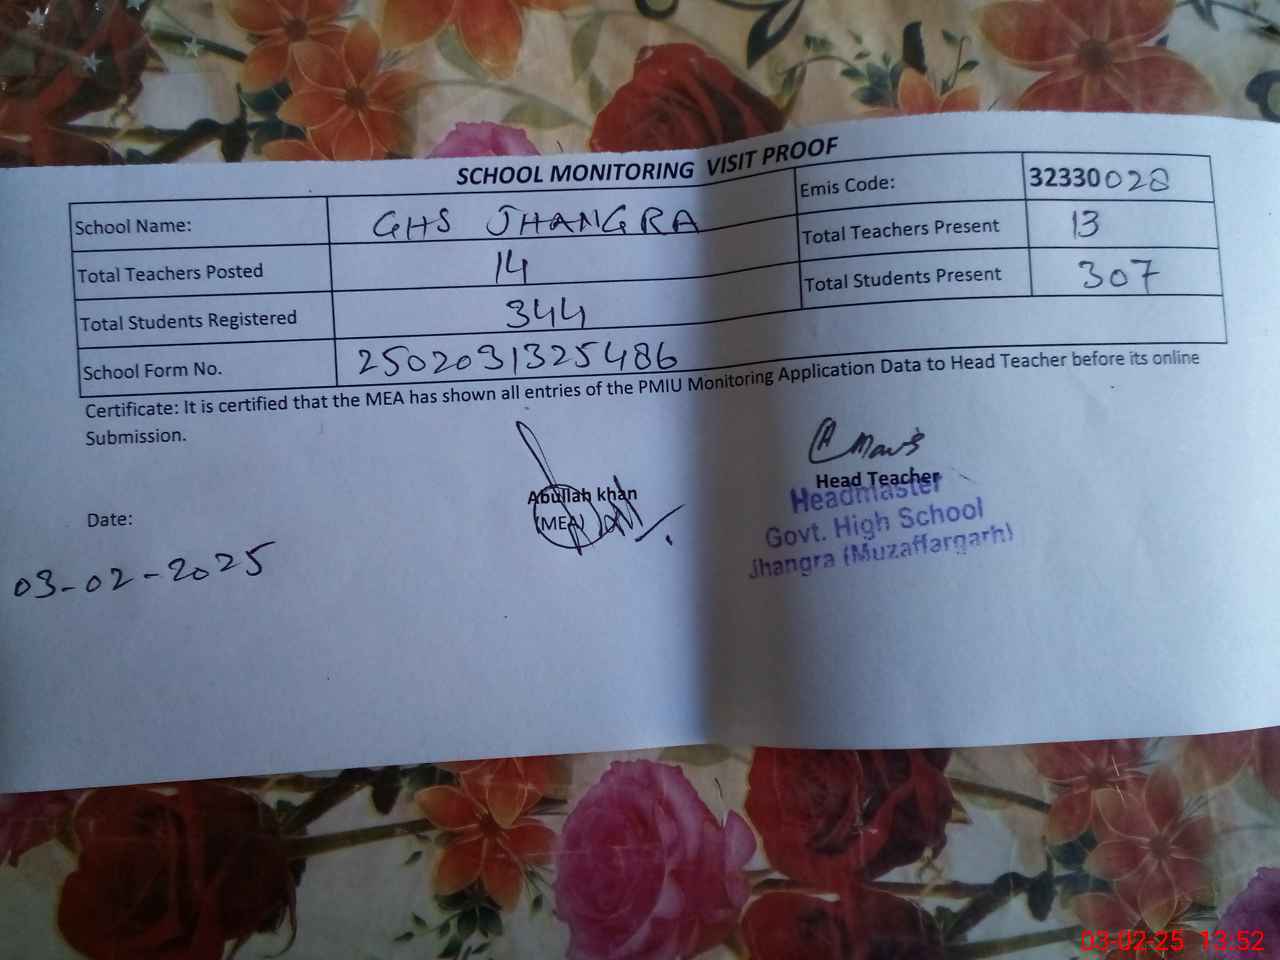 SCHOOL MONITORING VISIT PROOF
School Name: GHS JHANGRA Emis Code: 32330028
Total Teachers Posted 14 Total Teachers Present 13
Total Students Registered 344 Total Students Present 307
School Form No. 2502031325486
Certificate: It is certified that the MEA has shown all entries of the PMIU Monitoring Application Data to Head Teacher before its online
Submission.
Abullah khan
(MEA)
Head Teacher
Headmaster
Govt. High School
Jhangra (Muzaffargarh)
Date:
03-02-2025
03-02-25 13:52